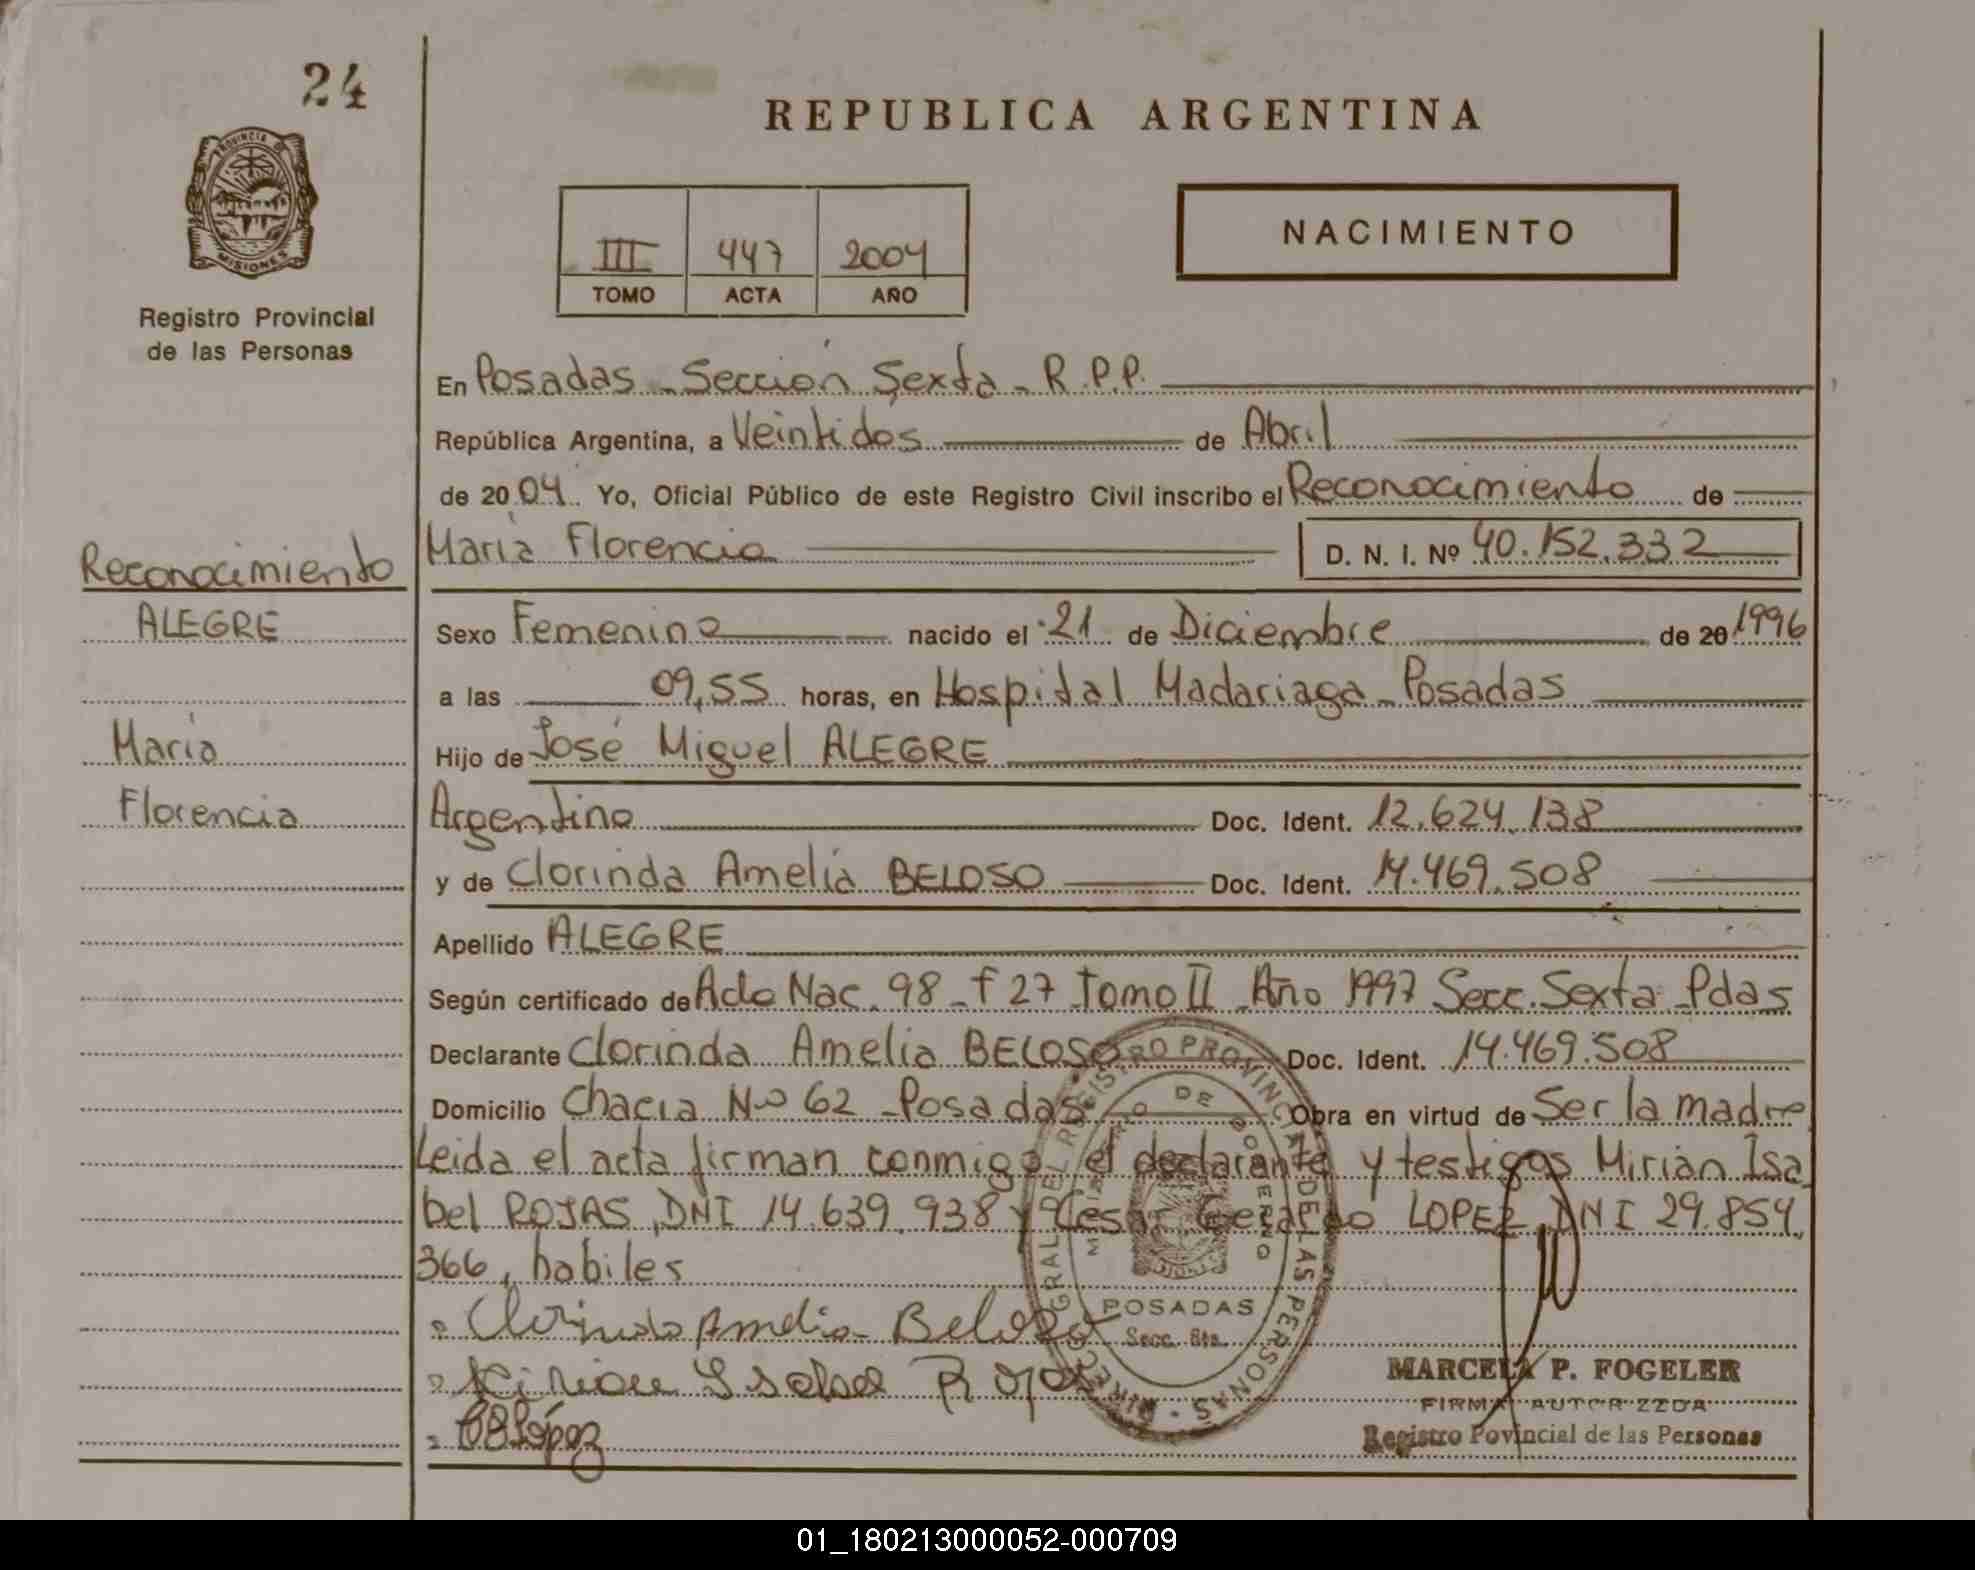 24
REPUBLICA ARGENTINA
PROVINCIA DE
MISIONES
Registro Provincial
de las Personas
III 447 2004
TOMO ACTA AÑO
NACIMIENTO
En Posadas - Sección Sexta - R.P.P.
República Argentina, a Veintidós de Abril
de 2004 Yo, Oficial Público de este Registro Civil inscribo el Reconocimiento de
María Florencia D. N. I. Nº 40.152.332
Reconocimiento
ALEGRE
María
Florencia
Sexo Femenino nacido el 21 de Diciembre de 20 1996
a las 09,55 horas, en Hospital Madariaga - Posadas
Hijo de José Miguel ALEGRE
Argentino Doc. Ident. 12.624.138
y de Clorinda Amelia BELOSO Doc. Ident. 14.469.508
Apellido ALEGRE
Según certificado de Acta Nac. 98 - f 27 Tomo II - Año 1997 Secc. Sexta - Pdas
Declarante Clorinda Amelia BELOSO Doc. Ident. 14.469.508
Domicilio Chacra Nº 62 - Posadas Obra en virtud de Ser la madre
Leida el acta firman conmigo el declarante y testigos Mirian Isa
bel ROJAS, DNI 14.639.938 y Cesar Gerardo LOPEZ, DNI 29.854.
366, habiles
Clorinda Amelia Beloso
Mirian Isabel Rojas
López
DIREC. GRAL. DEL REGISTRO PROVINCIAL DE LAS PERSONAS
MINISTERIO DE GOBIERNO
POSADAS
Secc. 6ta.
MARCELA P. FOGELER
FIRMA AUTORIZZDA
Registro Povincial de las Personas
01_180213000052-000709